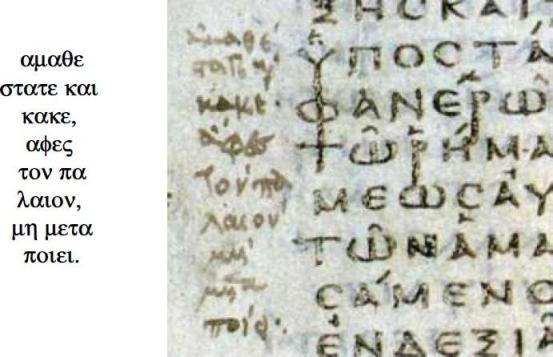 αμαθε
στατε και
κακε,
αφες
τον πα
λαιον,
μη μετα
ποιει.
κακέ·
τὸν πα
λαιον
μὴ
ποίει·
ϹΗϹΚΑΙ
ΥΠΟϹΤΆ
ΦΑΝΕΡῶ
Τῶ͂ΡΗΜΑ
ΜΕωϹΑΥ
ΤῶΝἉΜΑ
ϹΑΜΕΝΟ
ΕΝΔΕΞΙΑ